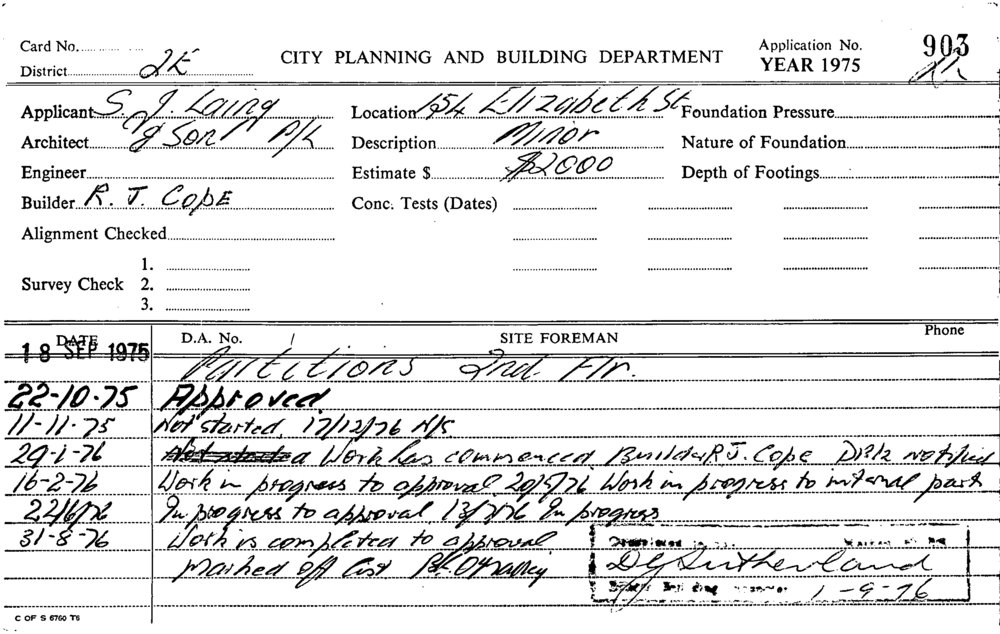 Card No.
CITY PLANNING AND BUILDING DEPARTMENT
Application No. 903
District 2E
YEAR 1975
Applicant S. J. Laing
Location 154 Elizabeth St
Foundation Pressure
Architect & Son P/L
Description Minor
Nature of Foundation
Engineer
Estimate $ $2000
Depth of Footings
Builder R. J. COPE
Conc. Tests (Dates)
Alignment Checked
Survey Check
1.
2.
3.
DATE D.A. No. SITE FOREMAN Phone
18 SEP 1975 Partitions 2nd. Flr.
22-10-75 Approved
11-11-75 Not started. 17/12/76 N/S.
29-1-76 Work has commenced. Builder R J. Cope notified
16-2-76 Work in progress to approval 20/5/76 Work in progress to internal part
22/6/76 In progress to approval 13/7/76 In progress
31-8-76 Work is completed to approval
marked off list
D G Sutherland
1-9-76
C OF S 6760 T6